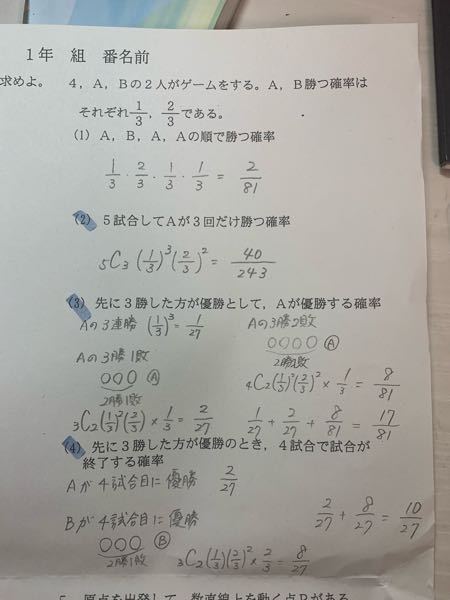 1年 組 番名前
求めよ。
4，A，Bの2人がゲームをする。A，B勝つ確率は
それぞれ1/3，2/3である。
(1) A，B，A，Aの順で勝つ確率
1/3・2/3・1/3・1/3 = 2/81
(2) 5試合してAが3回だけ勝つ確率
₅C₃(1/3)³(2/3)² = 40/243
(3) 先に3勝した方が優勝として，Aが優勝する確率
Aの3連勝 (1/3)³ = 1/27
Aの3勝1敗
○○○ Ⓐ
2勝1敗
₃C₂(1/3)²(2/3) × 1/3 = 2/27
Aの3勝2敗
○○○○ Ⓐ
2勝2敗
₄C₂(1/3)²(2/3)² × 1/3 = 8/81
1/27 + 2/27 + 8/81 = 17/81
(4) 先に3勝した方が優勝のとき，4試合で試合が
終了する確率
Aが4試合目に優勝 2/27
Bが4試合目に優勝
○○○ Ⓑ
2勝1敗
₃C₂(1/3)(2/3)² × 2/3 = 8/27
2/27 + 8/27 = 10/27
5 原点を出発して，数直線上を動く点Pがある。